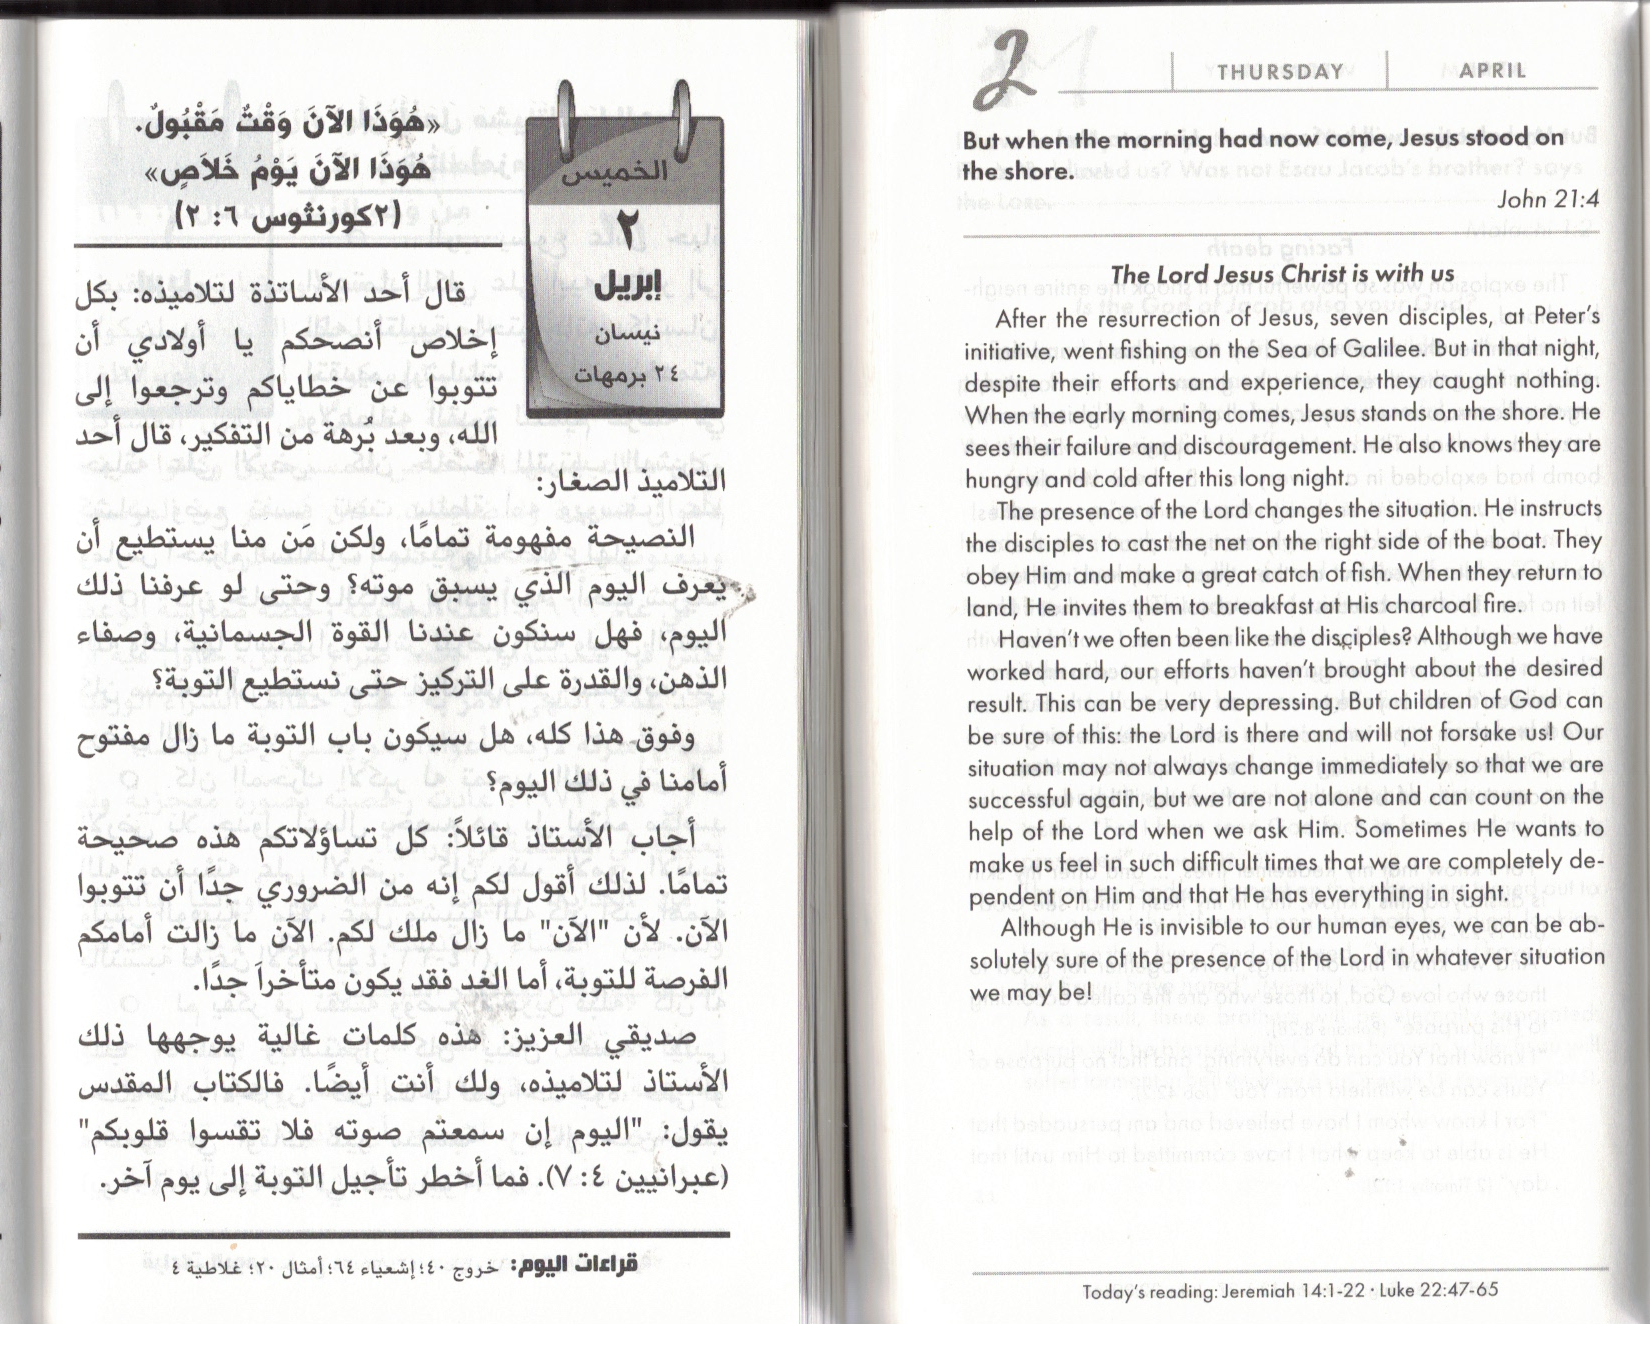 «هُوَذَا الآنَ وَقْتٌ مَقْبُولٌ.
هُوَذَا الآنَ يَوْمُ خَلاَصٍ»
(٢كورنثوس ٦: ٢)
الخميس
٢
إبريل
نيسان
٢٤ برمهات
قال أحد الأساتذة لتلاميذه: بكل
إخلاص أنصحكم يا أولادي أن
تتوبوا عن خطاياكم وترجعوا إلى
الله، وبعد بُرهة من التفكير، قال أحد
التلاميذ الصغار:
النصيحة مفهومة تمامًا، ولكن مَن منا يستطيع أن
يعرف اليوم الذي يسبق موته؟ وحتى لو عرفنا ذلك
اليوم، فهل سنكون عندنا القوة الجسمانية، وصفاء
الذهن، والقدرة على التركيز حتى نستطيع التوبة؟
وفوق هذا كله، هل سيكون باب التوبة ما زال مفتوح
أمامنا في ذلك اليوم؟
أجاب الأستاذ قائلاً: كل تساؤلاتكم هذه صحيحة
تمامًا. لذلك أقول لكم إنه من الضروري جدًا أن تتوبوا
الآن. لأن "الآن" ما زال ملك لكم. الآن ما زالت أمامكم
الفرصة للتوبة، أما الغد فقد يكون متأخراً جدًا.
صديقي العزيز: هذه كلمات غالية يوجهها ذلك
الأستاذ لتلاميذه، ولك أنت أيضًا. فالكتاب المقدس
يقول: "اليوم إن سمعتم صوته فلا تقسوا قلوبكم"
(عبرانيين ٤: ٧). فما أخطر تأجيل التوبة إلى يوم آخر.
قراءات اليوم: خروج ٤٠؛ إشعياء ٦٤؛ أمثال ٢٠؛ غلاطية ٤
2 THURSDAY APRIL
But when the morning had now come, Jesus stood on
the shore.
John 21:4
The Lord Jesus Christ is with us
After the resurrection of Jesus, seven disciples, at Peter's
initiative, went fishing on the Sea of Galilee. But in that night,
despite their efforts and experience, they caught nothing.
When the early morning comes, Jesus stands on the shore. He
sees their failure and discouragement. He also knows they are
hungry and cold after this long night.
The presence of the Lord changes the situation. He instructs
the disciples to cast the net on the right side of the boat. They
obey Him and make a great catch of fish. When they return to
land, He invites them to breakfast at His charcoal fire.
Haven't we often been like the disciples? Although we have
worked hard, our efforts haven't brought about the desired
result. This can be very depressing. But children of God can
be sure of this: the Lord is there and will not forsake us! Our
situation may not always change immediately so that we are
successful again, but we are not alone and can count on the
help of the Lord when we ask Him. Sometimes He wants to
make us feel in such difficult times that we are completely de-
pendent on Him and that He has everything in sight.
Although He is invisible to our human eyes, we can be ab-
solutely sure of the presence of the Lord in whatever situation
we may be!
Today's reading: Jeremiah 14:1-22 · Luke 22:47-65